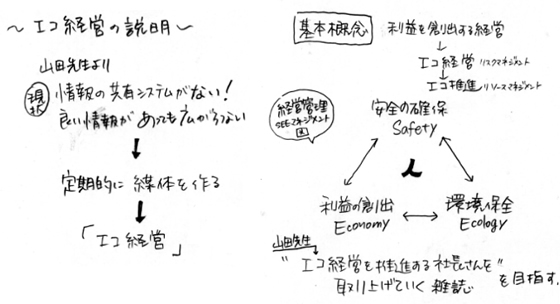 ～エコ経営の説明～
山田先生より
現状
情報の共有システムがない！
良い情報があっても広がらない
定期的に媒体を作る
「エコ経営」
基本概念
利益を創出する経営
エコ経営 リスクマネジメント
エコ推進 リソースマネジメント
経営管理
SEEマネジメント
図
安全の確保
Safety
人
利益の創出
Economy
環境保全
Ecology
山田先生
"エコ経営を推進する社長さんを"
取り上げていく雑誌 を目指す。